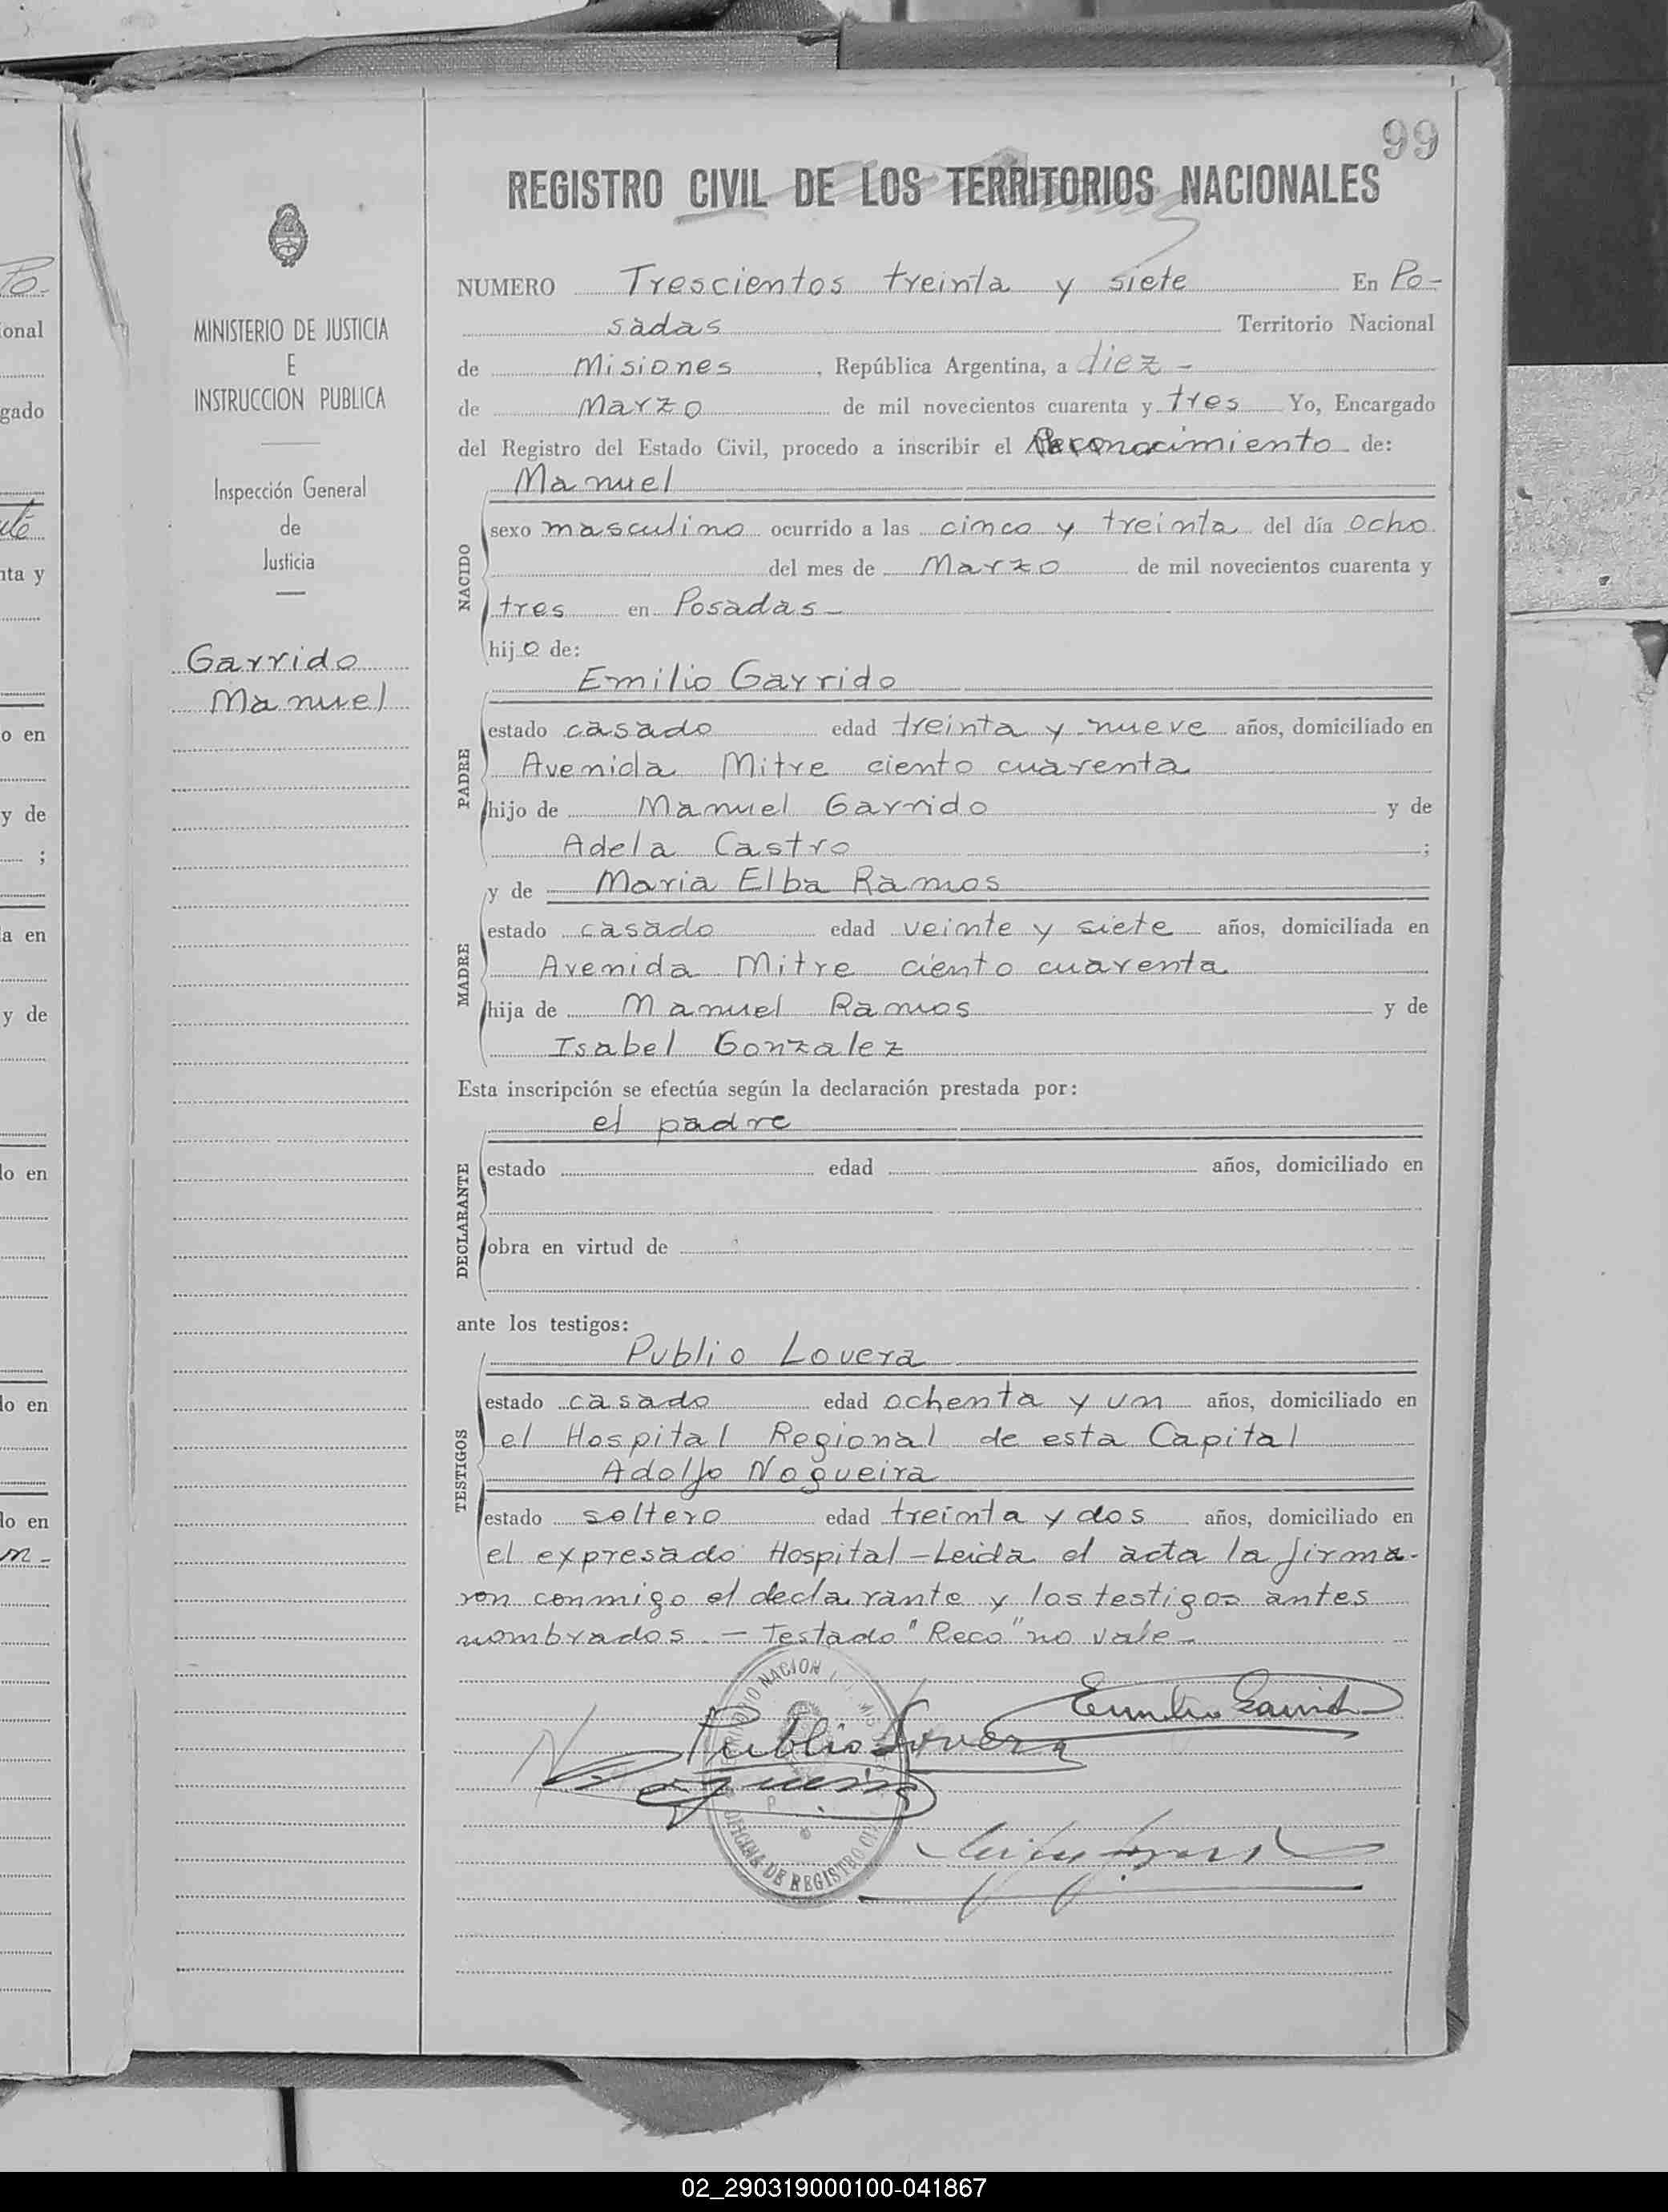 99
REGISTRO CIVIL DE LOS TERRITORIOS NACIONALES
MINISTERIO DE JUSTICIA
E
INSTRUCCION PUBLICA
Inspección General
de
Justicia
Garrido
Manuel
NUMERO Trescientos treinta y siete En Po-
sadas Territorio Nacional
de Misiones, República Argentina, a diez -
de Marzo de mil novecientos cuarenta y tres Yo, Encargado
del Registro del Estado Civil, procedo a inscribir el Reconocimiento de:
Manuel
NACIDO
sexo masculino ocurrido a las cinco y treinta del día ocho
del mes de Marzo de mil novecientos cuarenta y
tres en Posadas -
hijo de:
Emilio Garrido
PADRE
estado casado edad treinta y nueve años, domiciliado en
Avenida Mitre ciento cuarenta
hijo de Manuel Garrido y de
Adela Castro ;
y de Maria Elba Ramos
MADRE
estado casado edad veinte y siete años, domiciliada en
Avenida Mitre ciento cuarenta
hija de Manuel Ramos y de
Isabel Gonzalez
Esta inscripción se efectúa según la declaración prestada por:
el padre
DECLARANTE
estado edad años, domiciliado en
obra en virtud de
ante los testigos:
Publio Lovera
TESTIGOS
estado casado edad ochenta y un años, domiciliado en
el Hospital Regional de esta Capital
Adolfo Nogueira
estado soltero edad treinta y dos años, domiciliado en
el expresado Hospital - Leida el acta la firma-
ron conmigo el declarante y los testigos antes
nombrados. - Testado "Reco" no vale -
Emilio Garrido
Publio Lovera
Nogueira
OFICINA DE REGISTRO CIVIL
02_290319000100-041867